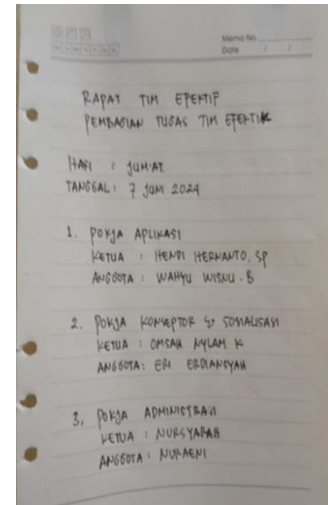 Memo No.
Date / /
RAPAT TIM EFEKTIF
PEMBAGIAN TUGAS TIM EFEKTIF
HARI : JUM'AT
TANGGAL : 7 JUNI 2024
1. POKJA APLIKASI
KETUA : HENDI HERNANTO, SP
ANGGOTA : WAHYU WISNU . B
2. POKJA KONSEPTOR & SOSIALISASI
KETUA : OMSAH NYLAM K
ANGGOTA : ERI ERDIANSYAH
3. POKJA ADMINISTRASI
KETUA : NURSYARAH
ANGGOTA : NURAENI